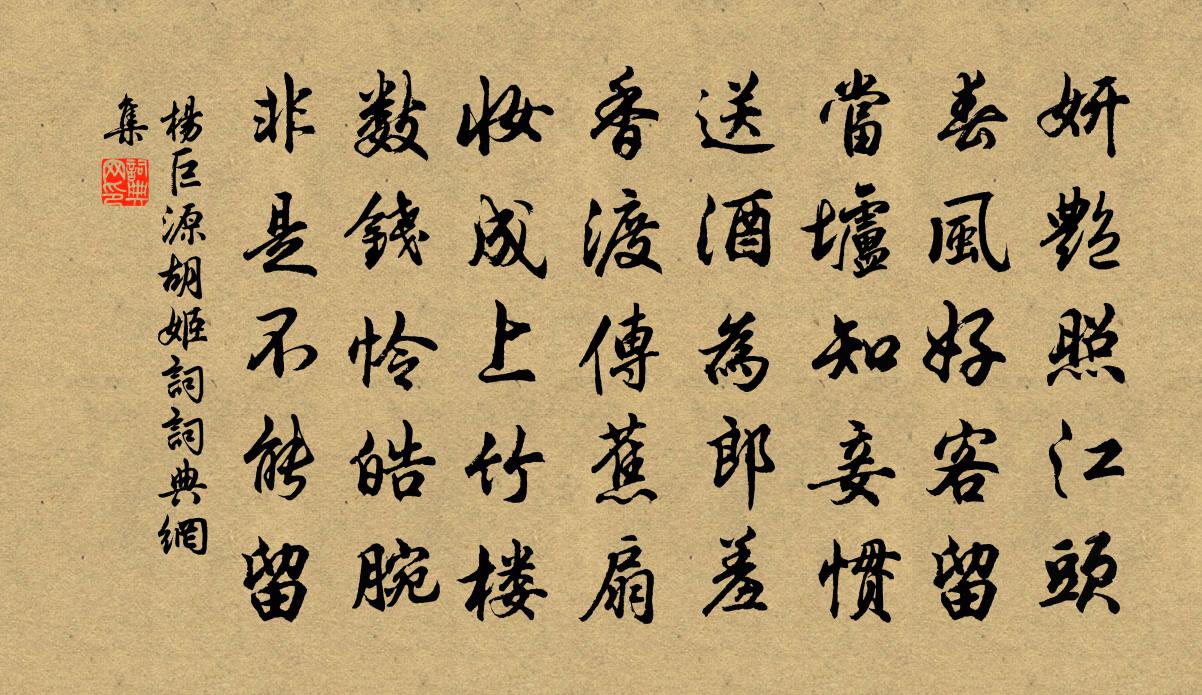 妍艷照江頭
春風好客留
當壚知妾慣
送酒為郎羞
香渡傳蕉扇
妝成上竹樓
數錢憐皓腕
非是不能留
楊巨源胡姬詞詞典網
集
詞典網印